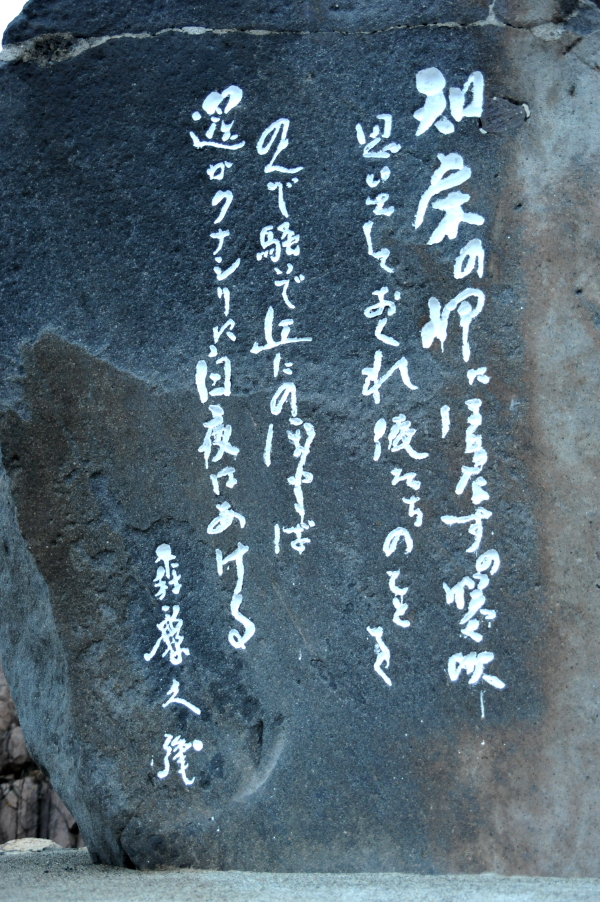 知床の岬に はまなすの咲く頃
思い出しておくれ 俺たちの事を
のんで騒いで 丘にのぼれば
遥かクナシリに 白夜は明ける
森繁久彌